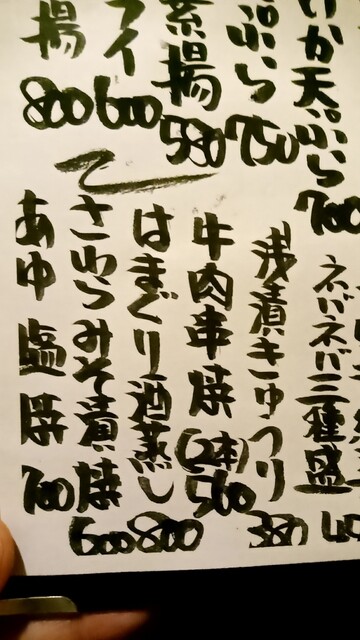 いか天ぷら 700
ぷら 750
素揚 580
フイ 600
揚 800
ネバネバ三種盛
浅漬きゅうり 380
牛肉串焼(2本) 500
はまぐり酒蒸し 800
さわらみそ漬焼 600
あゆ塩焼 700